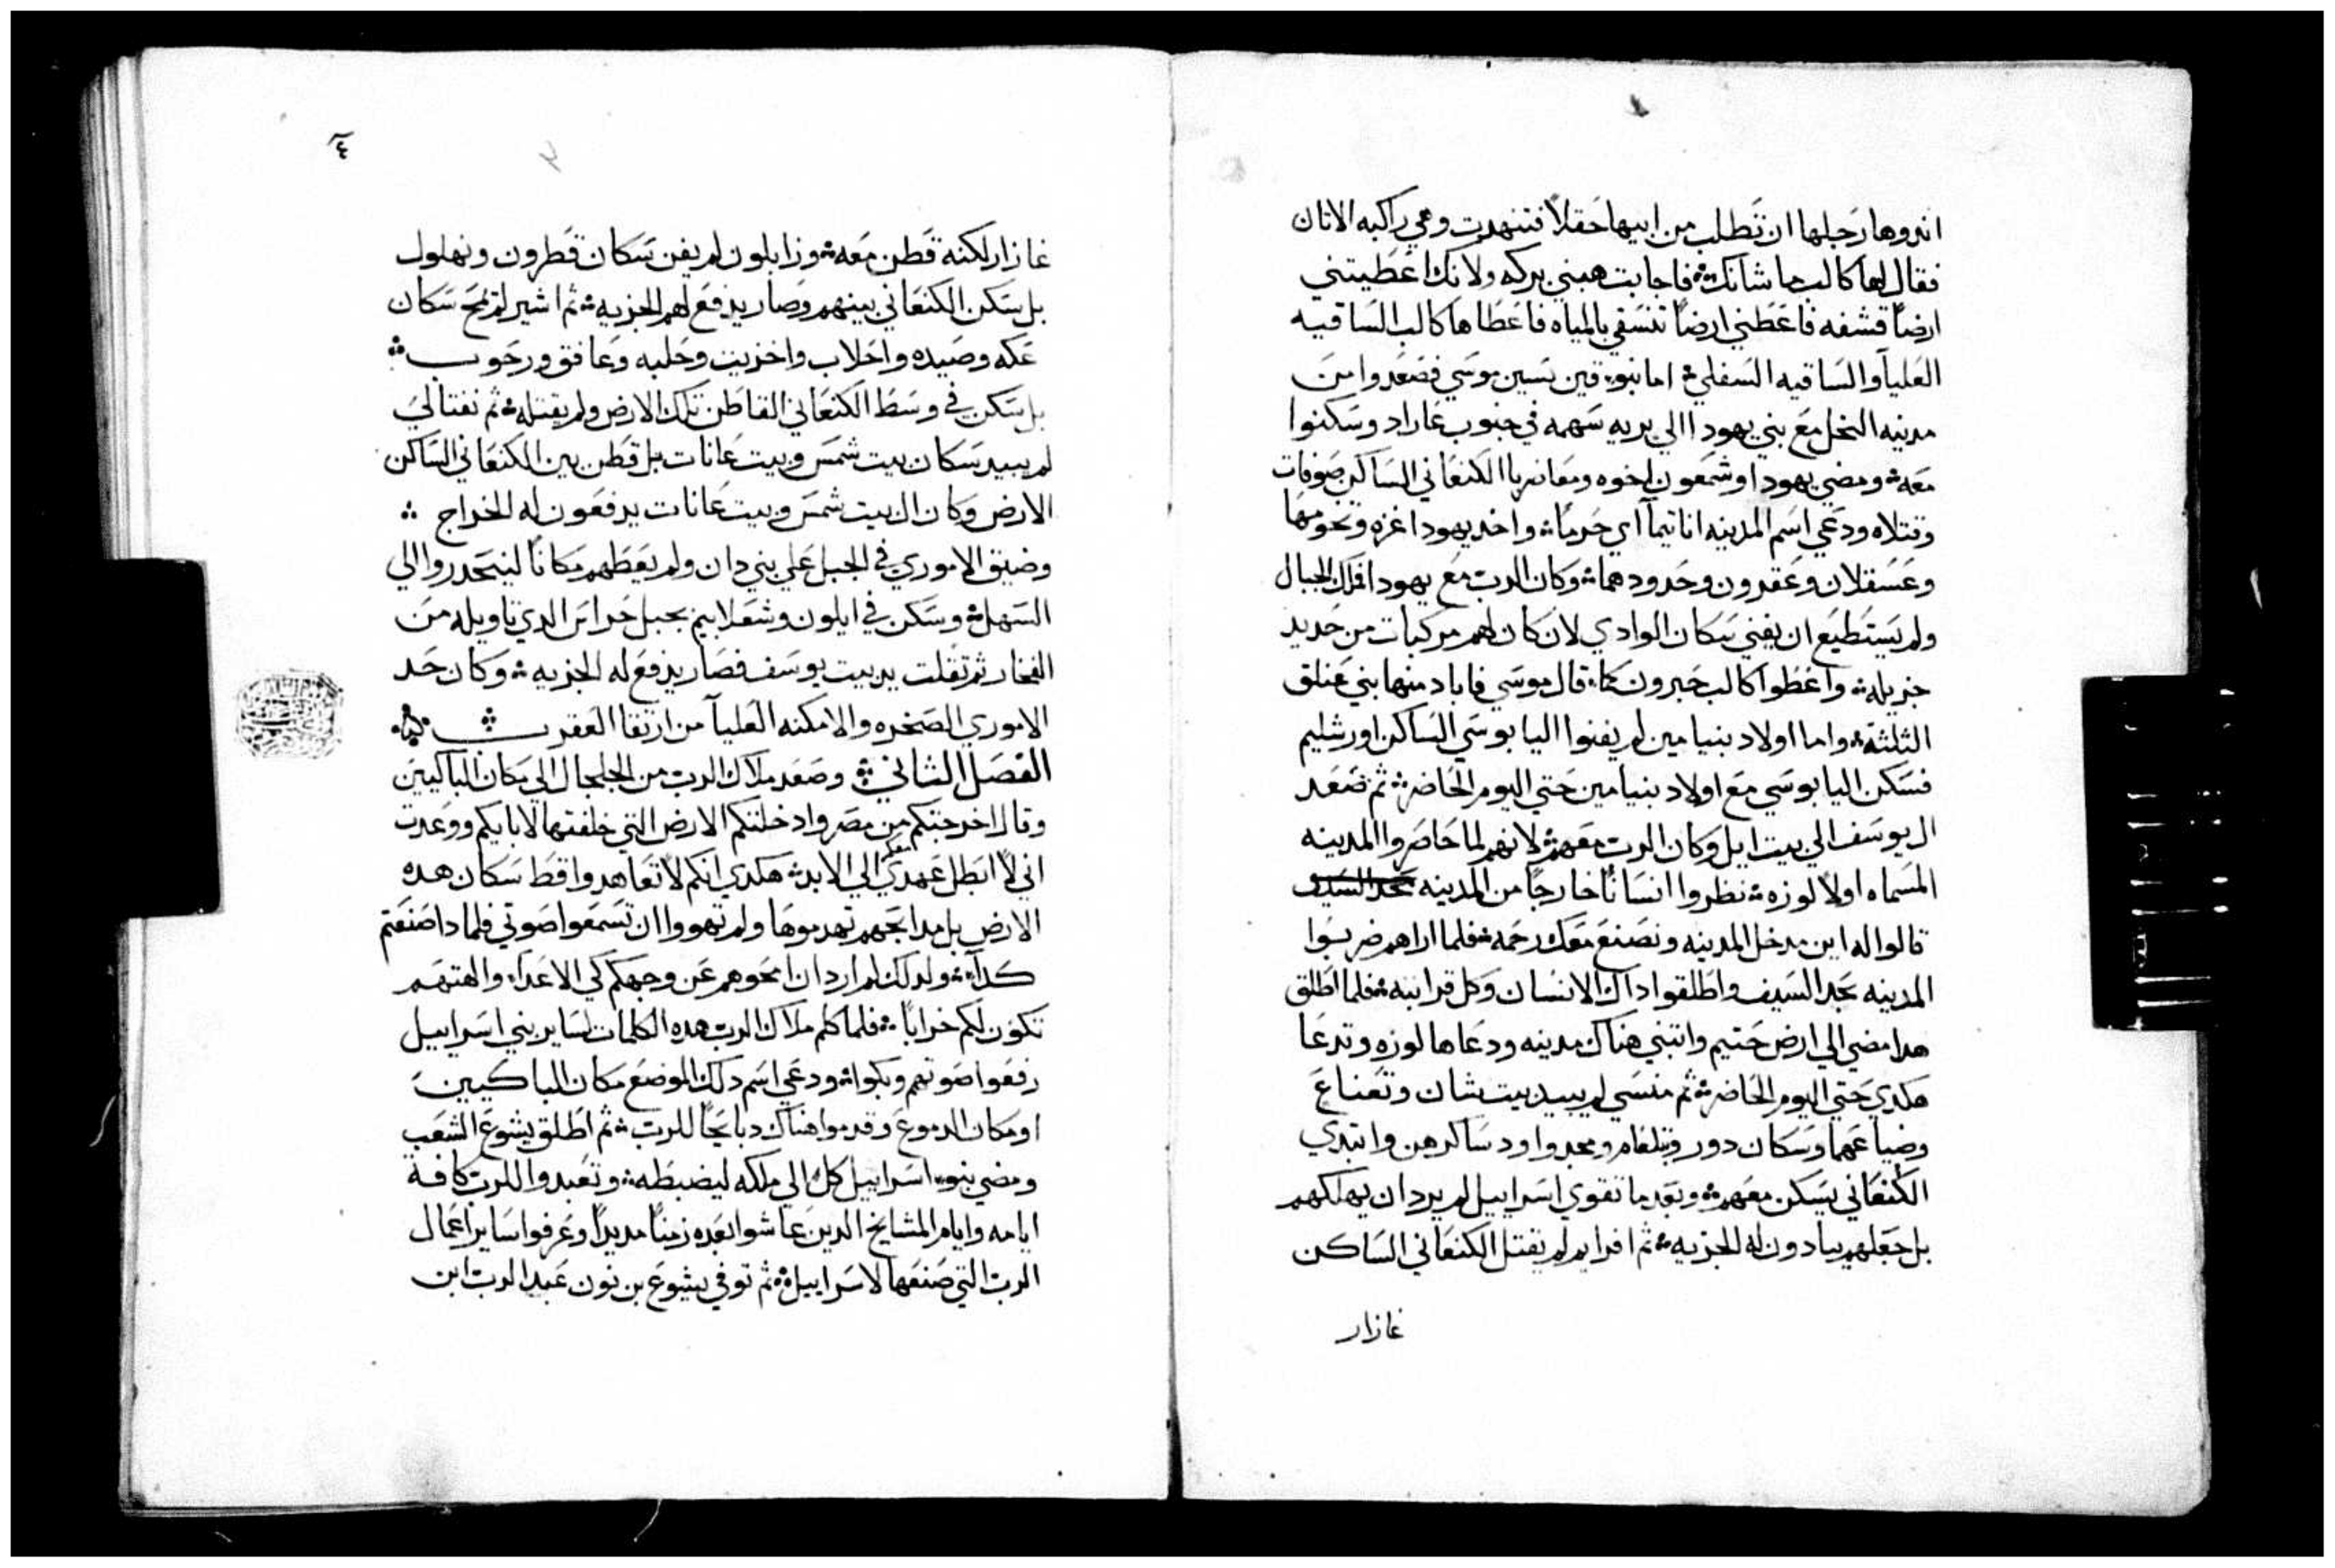 اندروها رجلها ان تطلب من ابيها حقلاً فتنهدت وهي راكبه الاتان
فقال لها كالب ما شانك فاجابت هبني بركه ولانك اعطيتني
ارضاً قشفه فاعطني ارضاً تنسقي بالمياه فاعطاها كالب الساقيه
العليا والساقيه السفلي اما بنو قين نسين موسي فصعدوا من
مدينه النخل مع بني يهودا الي بريه سهمه في جنوب عاراد وسكنوا
معه ومضي يهودا وشمعون اخوه ومعا ضربا الكنعاني الساكن صوفات
وقتلاه ودعي اسم المدينه اناتيما اي حرما واخد يهودا غزه وتخومها
وعسقلان وعقرون وحدودهما وكان الرب مع يهودا فملك الجبال
ولم يستطيع ان يفني سكان الوادي لان كان لهم مركبات من حديد
جزيله واعطوا كالب حبرون كما قال موسي فاباد منها بني عنلق
الثلثة واما اولاد بنيامين لم يفنوا اليابوسي الساكن اورشليم
فسكن اليابوسي مع اولاد بنيامين حتي اليوم الحاضر ثم صعد
ال يوسف الي بيت ايل وكان الرب معهم لانهم لما حاصروا المدينه
المسماه اولاً لوزه نظروا انساناً خارجاً من المدينه بحد السيف
قالوا له اين مدخل المدينه ونصنع معك رحمه فلما اراهم ضربوا
المدينه بحد السيف واطلقوا داك الانسان وكل قرابته فلما اطلق
هدا مضي الي ارض حتيم وابتني هناك مدينه ودعاها لوزه وتدعا
هكدي حتي اليوم الحاضر ثم منسي لم يبيد بيت شان وتعناع
وضياعهما وسكان دور ويبلعام ومجدوا ودساكرهن وابتدي
الكنعاني يسكن معهم وبعد ما تقوي اسراييل لم يرد ان يهلكهم
بل جعلهم يادون له الجزيه ثم افرايم لم يقتل الكنعاني الساكن
غازار
٤
غازار لكنه قطن معه وزابلون لم يفن سكان قطرون ونهلول
بل سكن الكنعاني بينهم وصار يدفع لهم الجزيه ثم اشير لم يمح سكان
عكه وصيده واحلاب واخزيت وحلبه وعافق ورحوب
بل سكن في وسط الكنعاني القاطن تلك الارض ولم يقتله ثم نفتالي
لم يبيد سكان بيت شمس وبيت عانات بل قطن بين الكنعاني الساكن
الارض وكان ال بيت شمس وبيت عانات يدفعون له الخراج
وضيق الاموري في الجبل علي بني دان ولم يعطهم مكاناً لينحدروا الي
السهل وسكن في ايلون وشعلابيم بجبل حراس الدي تاويله من
الفخار ثم تقلت يد بيت يوسف فصار يدفع له الجزيه وكان حد
الاموري الصخره والامكنه العليا من ارتقا العقرب
الفصل الثاني وصعد ملاك الرب من الجلجال الي مكان الباكيين
وقال اخرجتكم من مصر وادخلتكم الارض التي حلفتها لابايكم ووعدت
اني لا ابطل عهدي معكم الي الابد هكدي انكم لا تعاهدوا قط سكان هده
الارض بل مدابحهم تهدموها ولم تهووا ان تسمعوا صوتي فلمادا صنعتم
كدا ولدلك لم ارد ان امحوهم عن وجهكم لكي الاعدا والهتهم
تكون لكم خراباً فلما كلم ملاك الرب هده الكلمات لساير بني اسراييل
رفعوا صوتهم وبكوا ودعي اسم دلك الموضع مكان الباكيين
او مكان الدموع وقدموا هناك دبايحاً للرب ثم اطلق يشوع الشعب
ومضي بنو اسراييل كل الي ملكه ليضبطه وتعبدوا للرب كافة
ايامه وايام المشايخ الدين عاشوا بعده زمناً مديداً وعرفوا ساير اعمال
الرب التي صنعها لاسراييل ثم توفي يشوع بن نون عبد الرب ابن